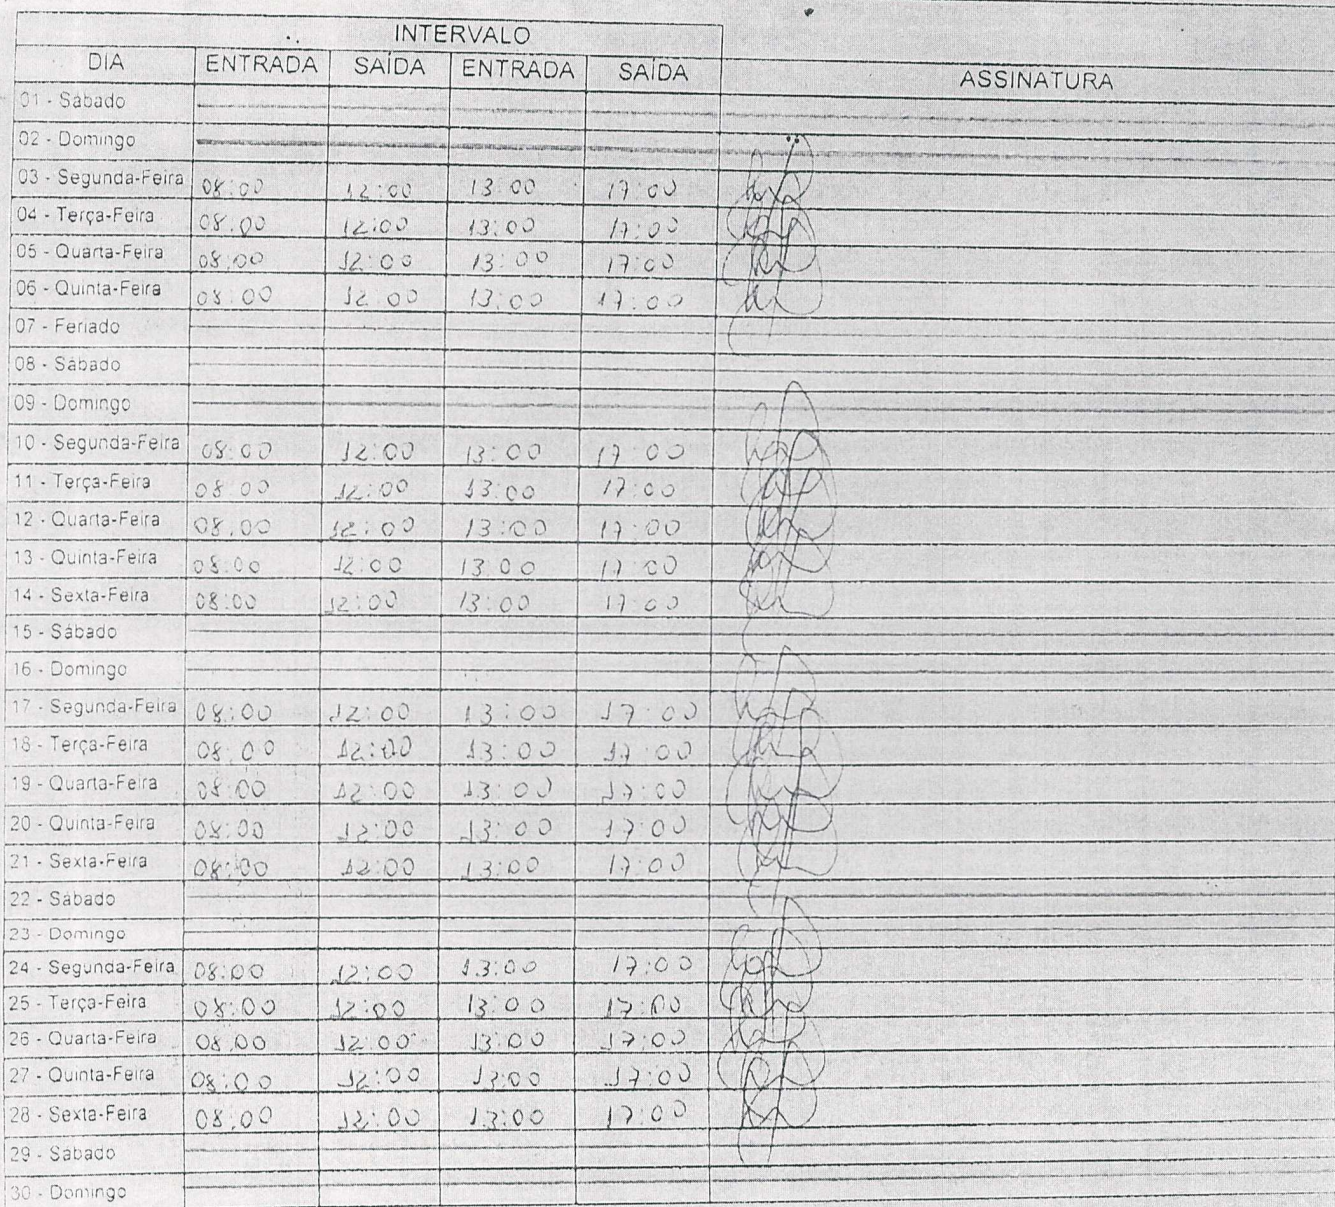 INTERVALO
DIA ENTRADA SAÍDA ENTRADA SAÍDA ASSINATURA
01 - Sábado
02 - Domingo
03 - Segunda-Feira 08:00 12:00 13:00 17:00
04 - Terça-Feira 08:00 12:00 13:00 17:00
05 - Quarta-Feira 08:00 12:00 13:00 17:00
06 - Quinta-Feira 08:00 12:00 13:00 17:00
07 - Feriado
08 - Sábado
09 - Domingo
10 - Segunda-Feira 08:00 12:00 13:00 17:00
11 - Terça-Feira 08:00 12:00 13:00 17:00
12 - Quarta-Feira 08:00 12:00 13:00 17:00
13 - Quinta-Feira 08:00 12:00 13:00 17:00
14 - Sexta-Feira 08:00 12:00 13:00 17:00
15 - Sábado
16 - Domingo
17 - Segunda-Feira 08:00 12:00 13:00 17:00
18 - Terça-Feira 08:00 12:00 13:00 17:00
19 - Quarta-Feira 08:00 12:00 13:00 17:00
20 - Quinta-Feira 08:00 12:00 13:00 17:00
21 - Sexta-Feira 08:00 12:00 13:00 17:00
22 - Sábado
23 - Domingo
24 - Segunda-Feira 08:00 12:00 13:00 17:00
25 - Terça-Feira 08:00 12:00 13:00 17:00
26 - Quarta-Feira 08:00 12:00 13:00 17:00
27 - Quinta-Feira 08:00 12:00 13:00 17:00
28 - Sexta-Feira 08:00 12:00 13:00 17:00
29 - Sábado
30 - Domingo